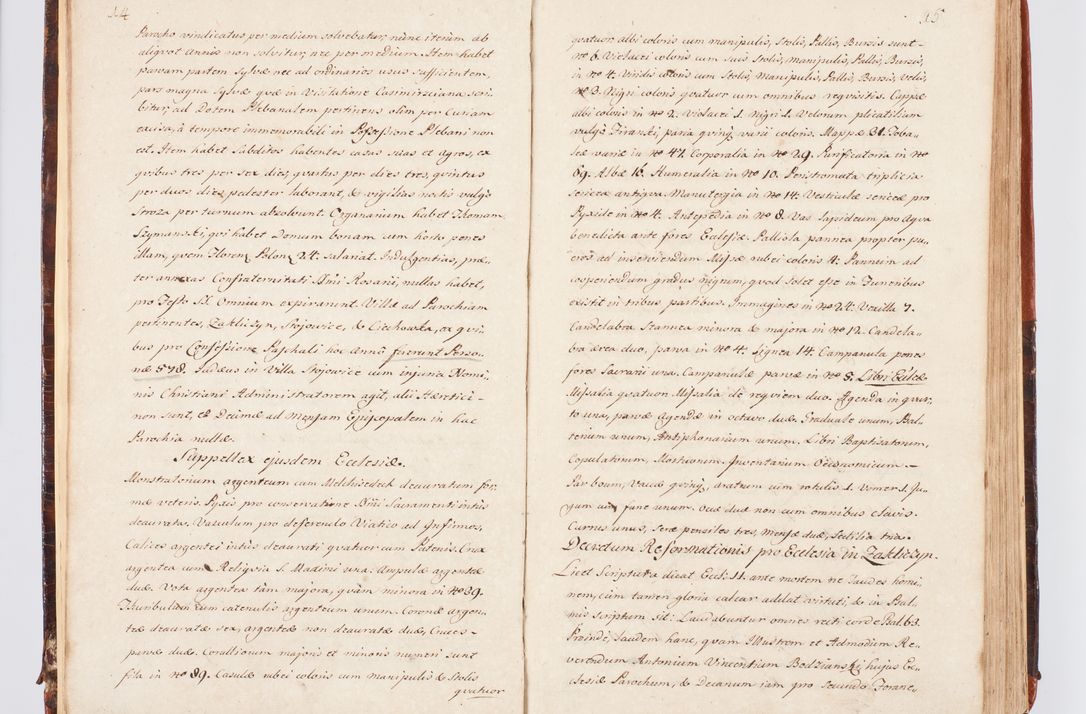 14
Parocho vindicatus per medium solvebatur, nunc iterum ab
aliquot annis non solvitur, nec per medium. Item habet
parvam partem Sylvæ nec ad ordinarios usus sufficientem,
pars magna Sylvæ quæ in Visitatione Casimirsciana scri-
bitur, ad Dotem Plebanalem pertinens olim per Curiam
excisa, à tempore immemorabili in Possessione Plebani non
est. Item habet Subditos habentes casas suas et agros, ex
quibus tres per sex dies, quartus per dies tres, quintus
per duos dies pedester laborant, & vigilias noctis vulgo
Stroza per turnum absolvunt. Organarium habet Thomam
Szymanski, qui habet Domum bonam cum horto penes
illam, quem Floren. Polon. 24. salariat. Indulgentias, præ-
ter annexas Confraternitati SSmi Rosarii, nullas habet,
pro Festo SS. Omnium expirarunt. Villæ ad Parochiam
pertinentes, Zakliczyn, Stojowice, & Ciechowka, ex qui-
bus pro Confessione Paschali hoc Anno fuerunt Perso-
næ 578. Judæus in Villa Stojowice cum injuria Nomi-
nis Christiani Administratorem agit, alii Hæretici
non sunt, & Decimæ ad Mensam Episcopalem in hac
Parochia nullæ.
Suppellex ejusdem Ecclesiæ.
Monstratorium argenteum cum Melchisedech deauratum for-
mæ veteris. Pyxis pro conservatione SSmi Sacramenti intùs
deaurata. Vasculum pro deferendo Viatico ad Infirmos,
Calices argentei intùs deaurati quatuor cum Patenis. Crux
argentea cum Religvia S. Maximi una. Ampulæ argenteæ
duæ. Vota argentea tàm majora, quàm minora in Nº 39.
Thuribulum cum catenulis argenteum unum. Coronæ argen-
teæ deauratæ sex, argenteæ non deauratæ duæ, Cruces
parvæ duæ. Corallionum majoris et minoris numeri sunt
fila in Nº 89. Casulæ rubei coloris cum manipulis & Stolis
quatuor
15
quatuor albi coloris cum manipulis, Stolis, Pallis, Bursis sunt
Nº 6. Violacei coloris cum suis Stolis, manipulis, Pallis, Bursis,
in Nº 4. Viridis coloris cum Stolis, Manipulis, Pallis, Bursis, Velis,
Nº 3. Nigri coloris quatuor cum omnibus requisitis. Cappæ
albi coloris in Nº 2. Violacei 1. Nigri 1. Velorum plicatilium
vulgò Firanki, paria quinq varii coloris. Mappæ 31. Toba-
leæ variæ in Nº 47. Corporalia in Nº 29. Purificatoria in Nº
89. Albæ 16. Humeralia in Nº 10. Peristromata triplicia
sericea antiqva. Manutergia in Nº 14. Vesticulæ sericeæ pro
Pyxide in Nº 4. Antepedia in Nº 8. Vas lapideum pro aqva
benedicta ante fores Ecclesiæ. Palliola pannea propter pu-
eros ad inserviendum Missæ rubei coloris 4. Pannum ad
cooperiendum gradus nigrum, quod solet esse in Funeribus
existit in tribus partibus. Immagines in Nº 24. Vexilla 7.
Candelabra Stannea minora & majora in Nº 12. Candela-
bra ærea duo, parva in Nº 4. Lignea 14. Campanula penes
fores Sacrarii una. Campanulæ parvæ in Nº 5. Libri Ecclæ
Missalia quatuor. Missalia de requiem duo. Agenda in quar-
to una, parvæ Agendæ in octavo duæ. Graduale unum, Psal-
terium unum, Antiphonarium unum. Libri Baptizatorum,
Copulatorum, Mortuorum. Inventarium Oeconomicum.
Par boum, Vaccæ quinq, aratrum cum rotulis 1. Vomer 1. Ju-
gum cum fune unum. Oves duæ non cum omnibus clavis.
Currus unus, Seræ pensiles tres, Mensæ duæ, Sedilia tria.
Decretum Reformationis pro Ecclesia in Zakliczyn.
Licet Scriptura dicat Eccl: 11. ante mortem ne laudes homi-
nem, cùm tamen gloria calcar addat virtuti, & in Psal-
mis scriptum sit: Laudabuntur omnes recti corde Psal: 63.
Proindè, laudem hanc, quam Illustrem et Admodum Re-
verendum Antonium Vincentium Bedzianski hujus Ec-
clesiæ Parochum, & Decanum jam pro secundo Forane-